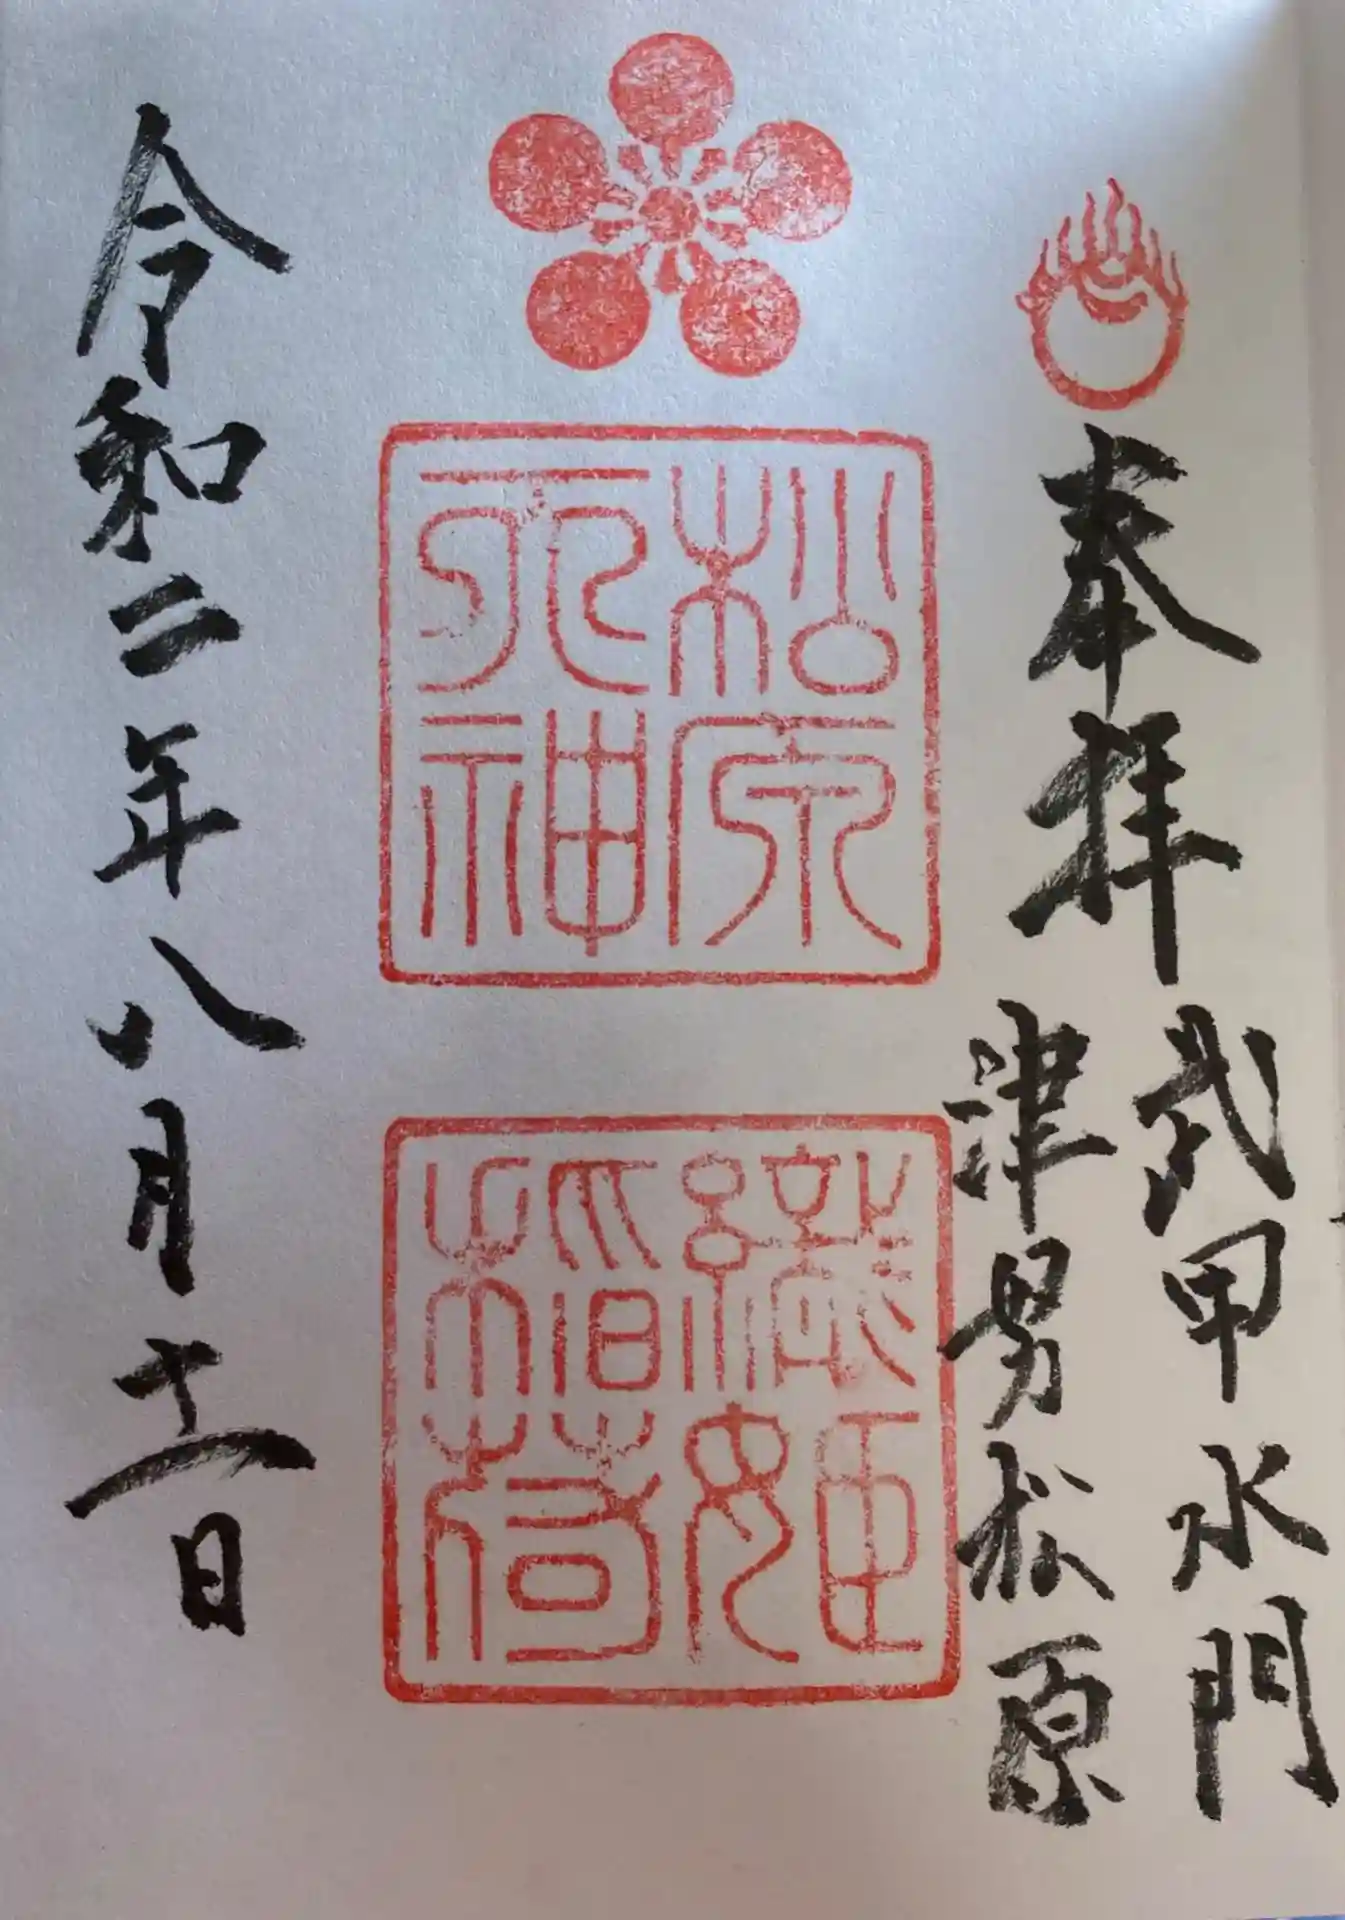 奉拝
武甲水門
津男松原
松原
天神
織姫
稲荷
令和二年八月十一日